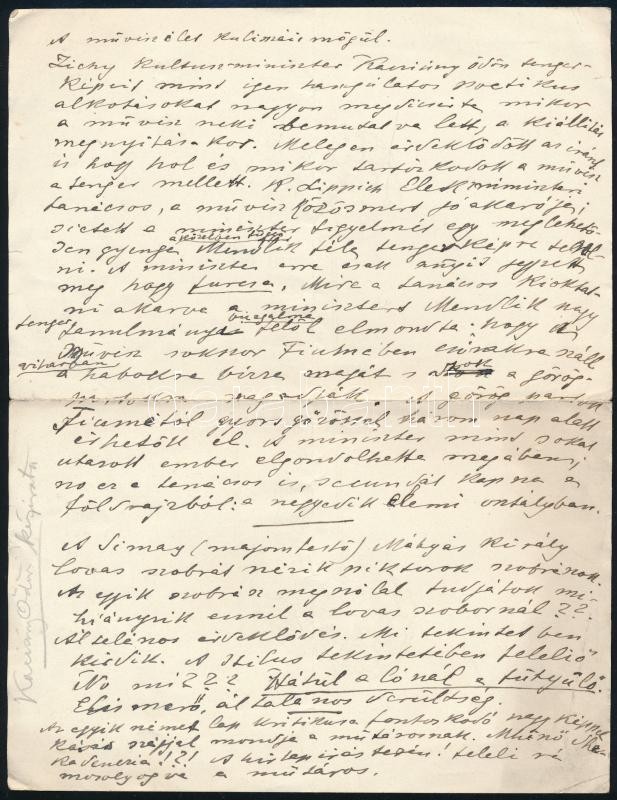 A művészélet kulisszái mögül.
Zichy kultuszminiszter Kacziány Ödön tenger-
képeit mind igen hangulatos poetikus
alkotásokat nagyon megdicsérte mikor
a művész neki bemutatva lett, a kiállítás
megnyitásakor. Melegen érdeklődött az iránt
is hogy hol és mikor tartózkodott a művész
a tenger mellett. K. Lippich Elek miniszteri
tanácsos, a művész közismert jó akarója,
sietett a miniszter figyelmét egy meglehető-
a közelben függő
sen gyenge Mendlik féle tenger képre terel-
ni. A miniszter erre csak annyit jegyzett
meg hogy furcsa. Mire a tanácsos kioktat-
ni akarva a minisztert Mendlik nagy
tenger buzgalma
tanulmány felől elmondta: hogy a
művész sokszor Fiumében éjszakra száll
viharban
a habokra bízza magát s a görög
partokra. A görög partok
Fiumétól gyorsgőzössel három nap alatt
érhetők el. A miniszter mind sokat
utazott ember elgondolhatta magában,
no ez a tanácsos is, secundát kapna a
földrajzból: a negyedik elemi osztályban.
A Simay (majomfestő) Mátyás király
lovas szobrát nézik piktorok szobrászok.
Az egyik szobrász megszólal tudjátok mi
hiányzik ennél a lovas szobornál??
Általános érdeklődés. Mi tekintetben
kérdik. A stilus tekintetében felelő
No mi??? Hátúl a lónál a fütyülő.
Elismerő, általános derültség.
Az egyik német lap kritikusa fontoskodó nagy képpel
mondja a műtárosnak.
A hírlapírás terén! feleli rá
mosolyogva a műtáros.
Kacziány Ödön kézirata